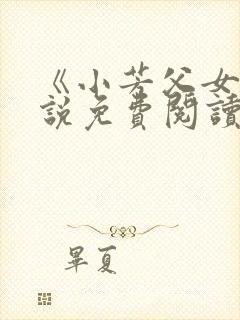 《小芳父女
說免費閱讀
畢夏